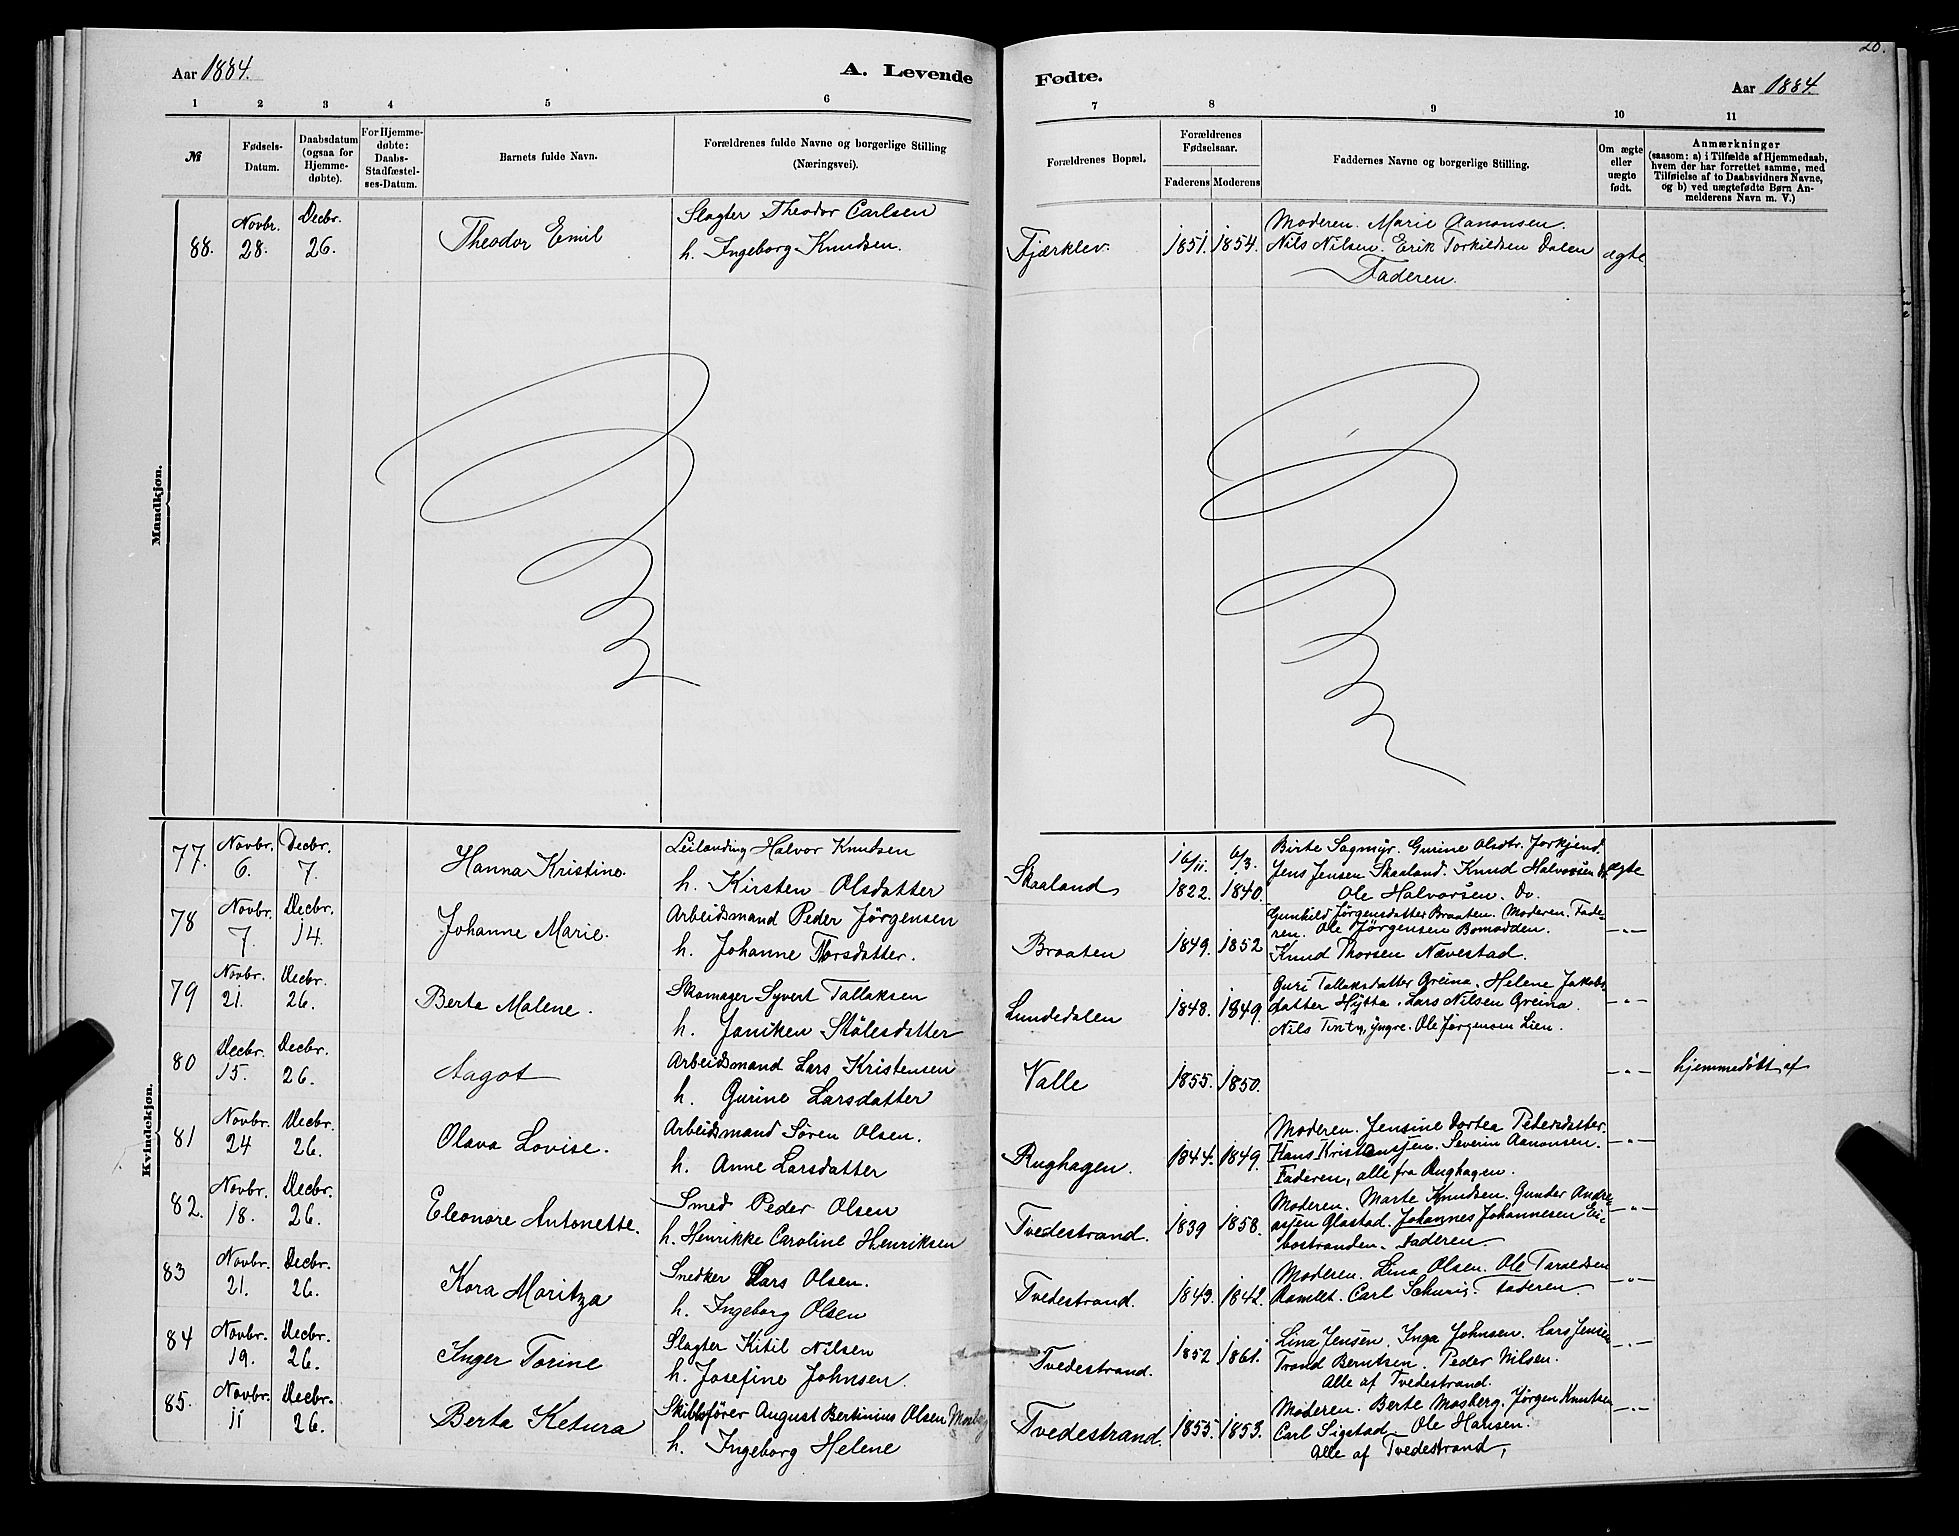 20.
Aar 1884.
A. Levende Fødte.
Aar 1884.
1 2 3 4 5 6 7 8 9 10 11
№
Fødsels-
Datum.
Daabsdatum
(ogsaa for
Hjemme-
døbte).
For Hjemme-
døbte:
Daabs-
Stadfæstel-
ses-Datum.
Barnets fulde Navn.
Forældrenes fulde Navne og borgerlige Stilling
(Næringsvei).
Forældrenes Bopæl.
Forældrenes
Fødselsaar.
Faderens Moderens
Faddernes Navne og borgerlige Stilling.
Om ægte
eller
uægte
født.
Anmærkninger
(saasom: a) i Tilfælde af Hjemmedaab,
hvem der har forrettet samme, med
Tilføielse af to Daabsvidners Navne,
og b) ved uægtefødte Børn An-
melderens Navn m. V.)
Mandkjøn.
88.
Novbr.
28.
Decbr.
26.
Theodor Emil
Slagter Theodor Carlsen
h. Ingeborg Knudsen.
Fjærklev.
1851. 1854.
Moderen. Marie Aanonsen.
Nils Nilsen. Erik Torkildsen Dalen
Faderen.
ægte
Kvindekjøn.
77.
Novbr.
6.
Decbr.
7.
Hanna Kristine.
Leilænding Halvor Knudsen
h. Kirsten Olsdatter
Skaaland
16/11 6/3.
1822. 1840.
Birte Sagmyr. Gurine Olsdtr.
Jens Jensen Skaaland. Knud Halvorsen
Ole Halvorsen. Do.
ægte
78
Novbr.
7.
Decbr.
14.
Johanne Marie.
Arbeidsmand Peder Jørgensen
h. Johanne Thorsdatter.
Braaten
1849. 1852
Gunhild Jørgensdatter Braaten. Moderen. Fade-
ren. Ole Jørgensen Bomodden.
Knud Thorsen Nævestad.
-"-
79
Novbr.
21.
Decbr.
26.
Berte Malene.
Skomager Syvert Tallaksen
h. Janiken Stölesdatter
Lundedalen
1848. 1849.
Guri Tallaksdatter Greina. Helene Jakobs
datter Hytta. Lars Nilsen Greina.
Nils yngre. Ole Jørgensen Lien.
-"-
80
Decbr.
15.
Decbr.
26.
Aagot
Arbeidsmand Lars Kristensen
h. Gurine Larsdatter
Valle
1855. 1850.
-"-
hjemmedöbt af
81
Novbr.
24
Decbr.
26.
Olava Lovise.
Arbeidsmand Sören Olsen.
h. Anne Larsdatter
Rughagen.
1844. 1849.
Moderen. Jensine Dortea Pedersdatter.
Hans Kristensen. Severin Aanonsen.
Faderen, alle fra Rughagen.
-"-
82.
Novbr.
18.
Decbr.
26.
Eleonore Antonette.
Smed Peder Olsen
h. Henrikke Caroline Henriksen
Tvedestrand.
1839 1858.
Moderen. Marte Knudsen. Gunder Andre
asjen Glastad. Johannes Johannesen Ei-
bostranden. Faderen
-"-
83
Novbr.
21.
Decbr.
26.
Kora Maritza
Snedker Lars Olsen.
h. Ingeborg Olsen
Tvedestrand.
1843. 1842.
Moderen. Lina Olsen. Ole Taraldsen
Ramlet. Carl Schurig. Faderen.
-"-
84
Novbr.
19.
Decbr.
26.
Inger Torine
Slagter Kitil Nilsen
h. Josefine Johnsen.
Tvedestrand.
1852 1861.
Lina Jensen. Inga Johnsen. Lars Jensen
Trond Berntsen. Peder Nilsen.
Alle af Tvedestrand.
-"-
85.
Novbr.
11
Decbr.
26.
Berta Ketura
Skibsförer August Bertinius Olsen Mosberg
h. Ingeborg Helene
Tvedestrand.
1855. 1853.
Moderen. Berte Mosberg. Jörgen Knutsen
Carl Sigstad. Ole Hansen.
Alle af Tvedestrand.
-"-